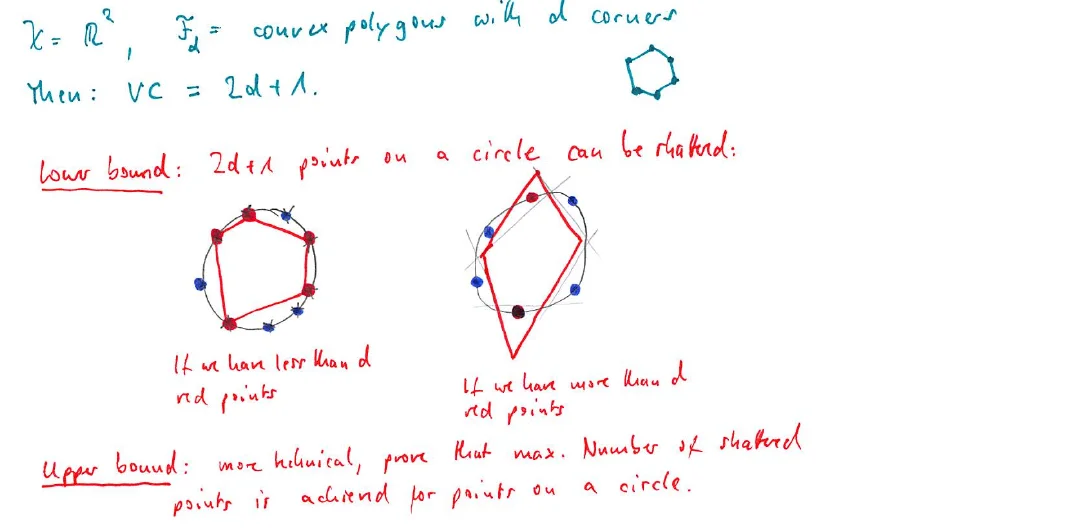 X = ℝ², F_d = convex polygons with d corners
Then: VC = 2d+1.
Lower bound: 2d+1 points on a circle can be shattered:
If we have less than d
red points
If we have more than d
red points
Upper bound: more technical, prove that max. Number of shattered
points is achieved for points on a circle.